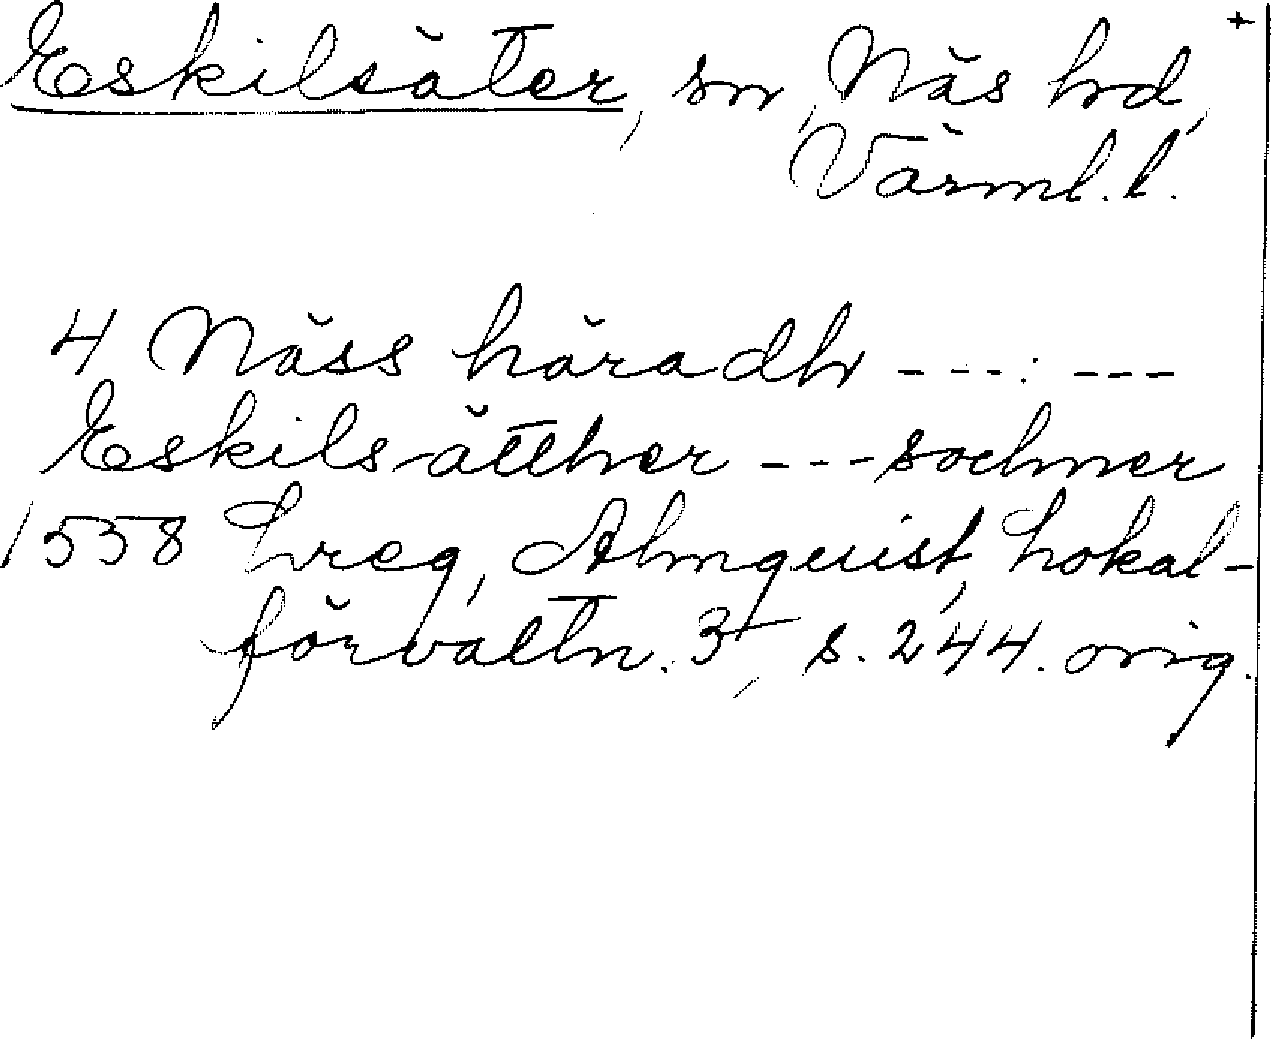 Eskilsäter, sn, Näs hd, +
Värml. l.
4 Näss häradh ---:---
Eskilsätther --- sochner
1558 Lreg, Almquist, Lokal-
förvaltn. 3, s. 244. orig.